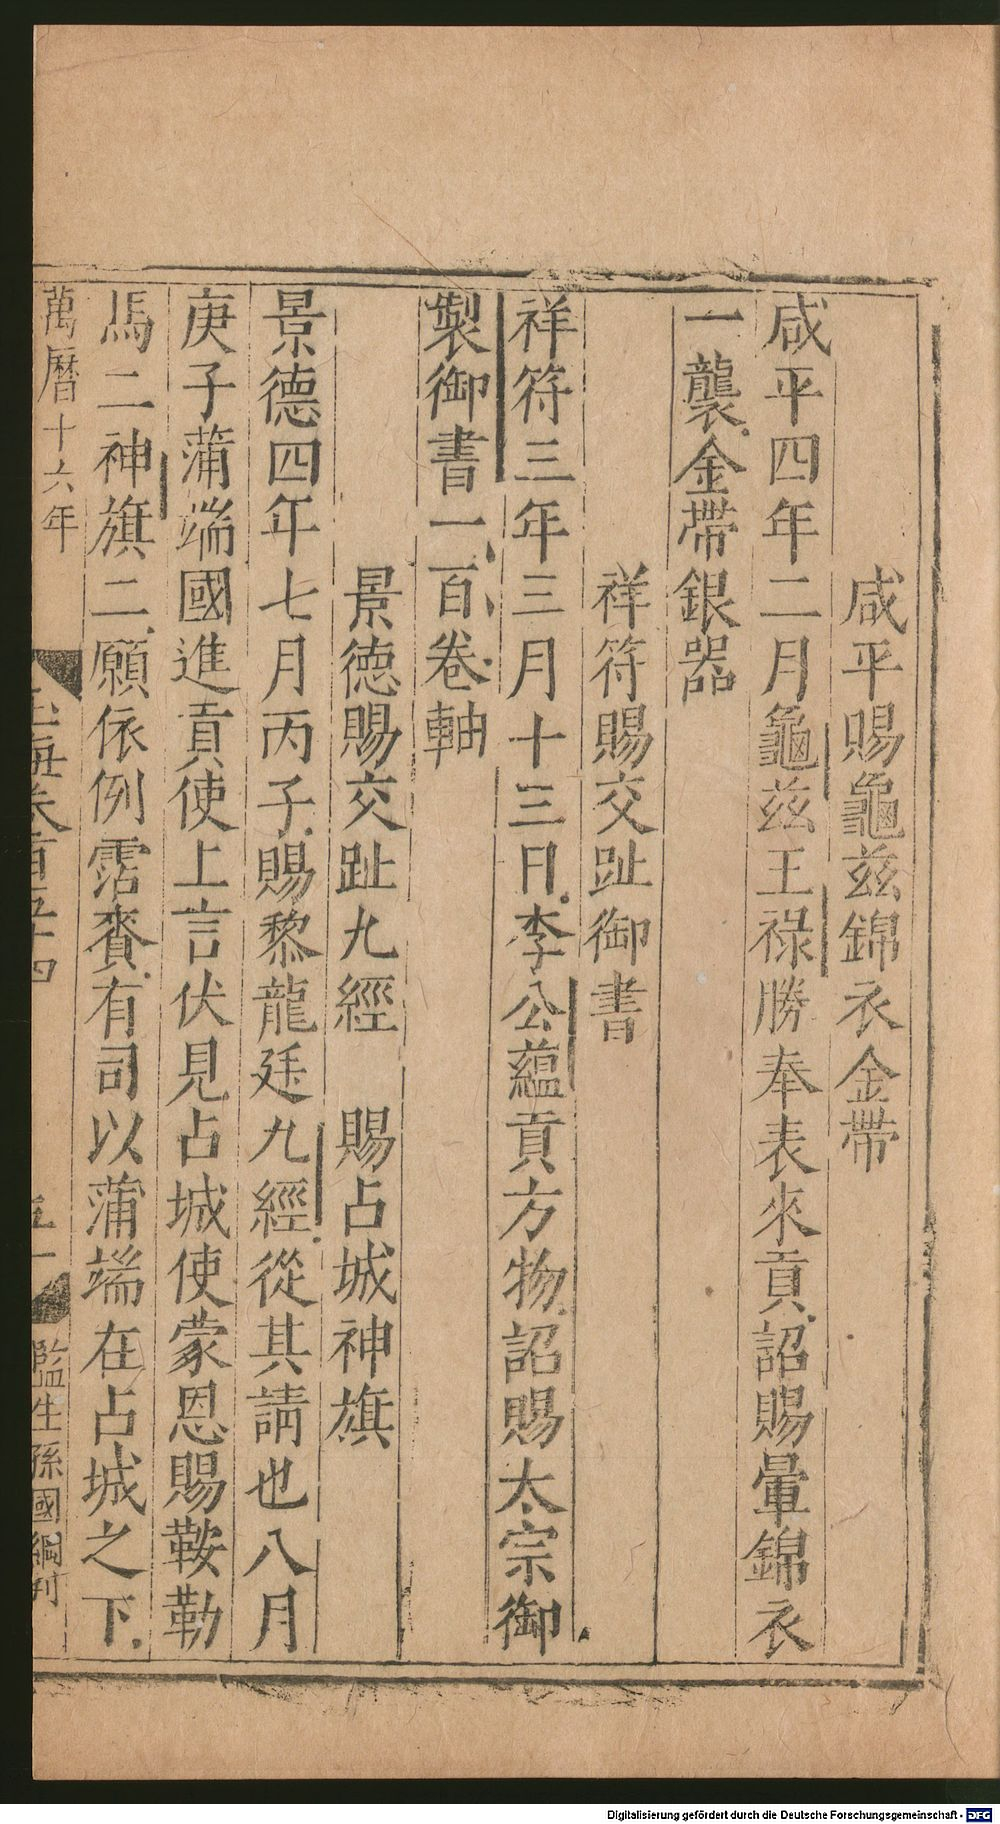 咸平賜龜茲錦衣金帶
咸平四年二月龜茲王祿勝奉表來貢詔賜暈錦衣
一襲金帶銀器
祥符賜交趾御書
祥符三年三月十三日李公蘊貢方物詔賜太宗御
製御書一百卷軸
景德賜交趾九經　賜占城神旗
景德四年七月丙子賜黎龍廷九經從其請也八月
庚子蒲端國進貢使上言伏見占城使蒙恩賜鞍勒
馬二神旗二願依例霑賚有司以蒲端在占城之下
萬曆十六年
玉海卷百五十四
監生孫國綱刊
Digitalisierung gefördert durch die Deutsche Forschungsgemeinschaft - DFG